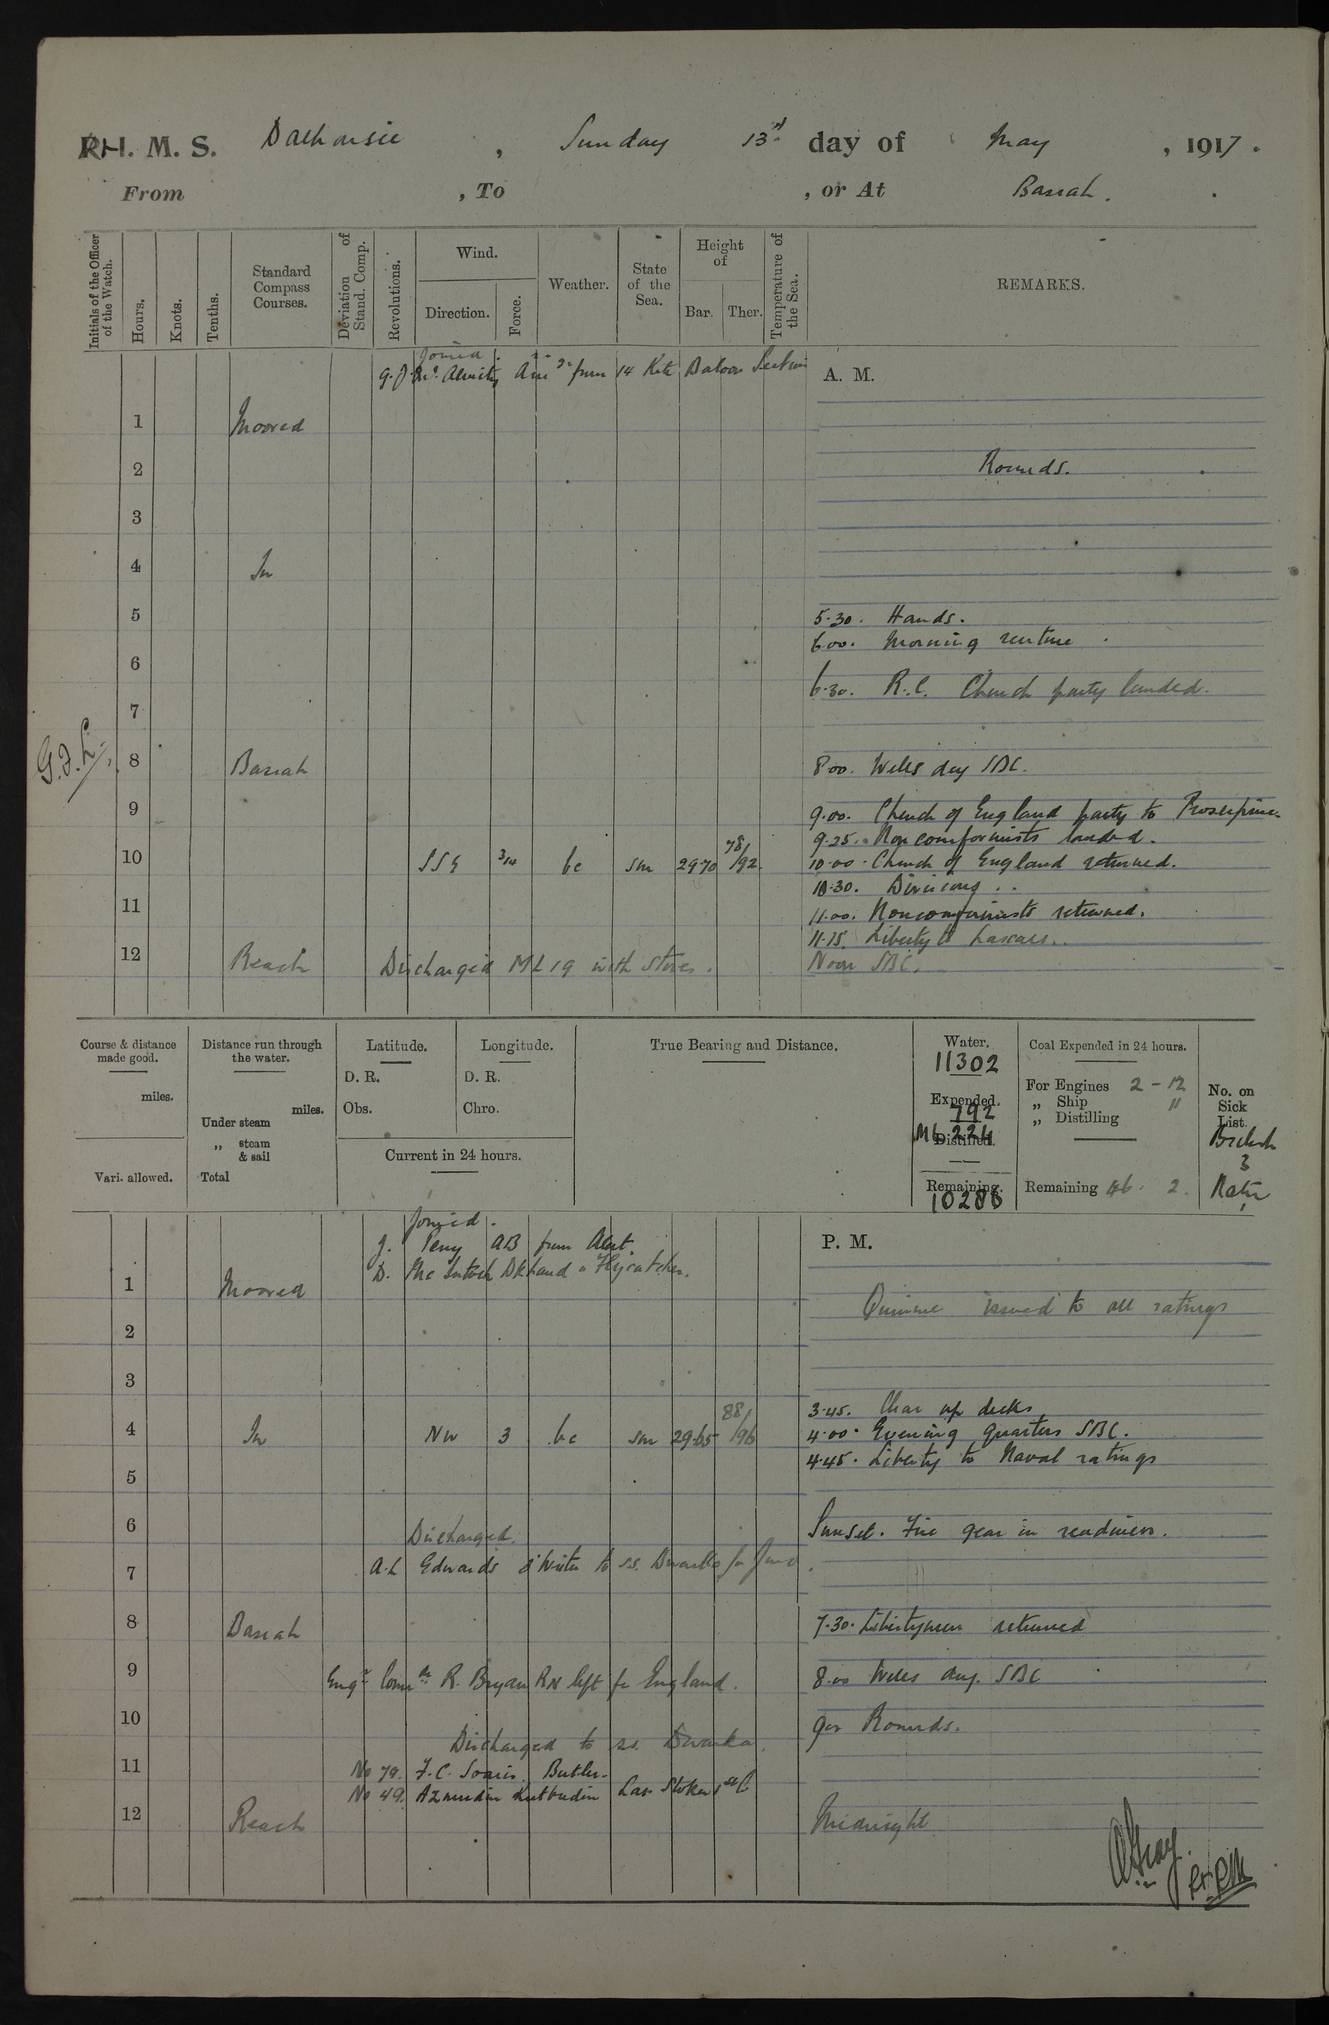 R.I.M.S. Dalhousie, Sunday 13th day of May, 1917.
From , To , or At Basrah.
Initials of the Officer of the Watch.
Hours.
Knots.
Tenths.
Standard Compass Courses.
Deviation of Stand. Comp.
Revolutions.
Wind.
Direction.
Force.
Weather.
State of the Sea.
Height of
Bar. Ther.
Temperature of the Sea.
REMARKS.
Joined.
from 14 Kite Baloon Section
A. M.
1 Moored
2 Rounds.
3
4 In
5 5.30. Hands.
6.00. Morning routine.
6
6.30. R.C. Church party landed.
7
G.F.L.
8 Basrah 8.00. Wells dry SBC.
9 9.00. Church of England party to Proserpine.
9.25. Noncomformists landed.
10 SSE 3/4 bc sm 29.70 78/92 10.00. Church of England returned.
10.30. Divisions.
11 11.00. Nonconformists returned.
11.15. Liberty to Lascars.
12 Reach Discharged ML 19 with stores. Noon SBC.
Course & distance made good.
miles.
Vari. allowed.
Distance run through the water.
miles.
Under steam
„ steam & sail
Total
Latitude.
D. R.
Obs.
Longitude.
D. R.
Chro.
Current in 24 hours.
True Bearing and Distance.
Water.
11302
Expended.
792
ML 224
Distilled.
Remaining.
10286
Coal Expended in 24 hours.
For Engines 2 - 12
„ Ship "
„ Distilling
Remaining 46. 2.
No. on Sick List.
British
3
Native
1
Joined.
J. Perry AB from Alert.
D. McIntosh Dkhand " Flycatcher.
P. M.
1 Moored Quinine issued to all ratings
2
3
3.45. Clear up decks
4 In NW 3 bc sm 29.65 88/96 4.00. Evening quarters SBC.
4.45. Liberty to Naval ratings
5
6 Sunset. Fire gear in readiness.
Discharged.
A.L Edwards to s.s. Dwarka
7
8 Basrah 7.30. Libertymen returned
9 Engr Comdr R. Bryan RN left for England. 8.00 Wells dry. SBC
10 9.00 Rounds.
Discharged to s.s. Dwarka.
11 No 79. F.C. Soares. Butler.
No 49. Azmudin Kutbudin Las Stoker
12 Reach Midnight